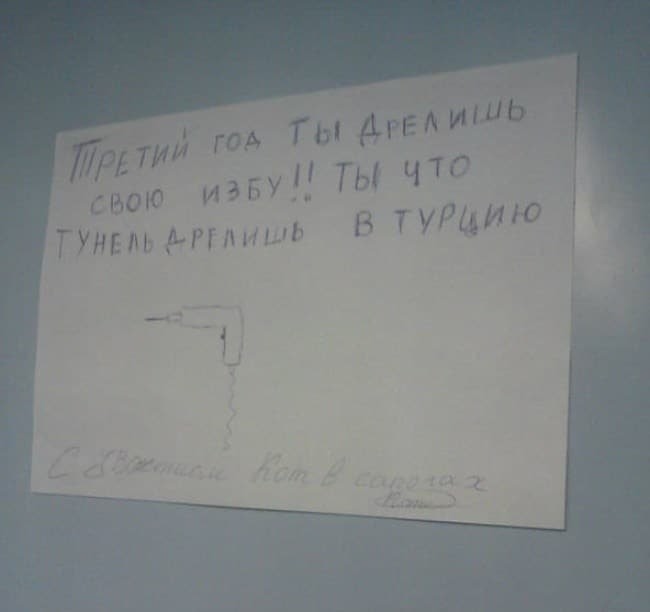 ТРЕТИЙ ГОД ТЫ ДРЕЛИШЬ
СВОЮ ИЗБУ!! ТЫ ЧТО
ТУНЕЛЬ ДРЕЛИШЬ В ТУРЦИЮ
С Уважением Кот в сапогах